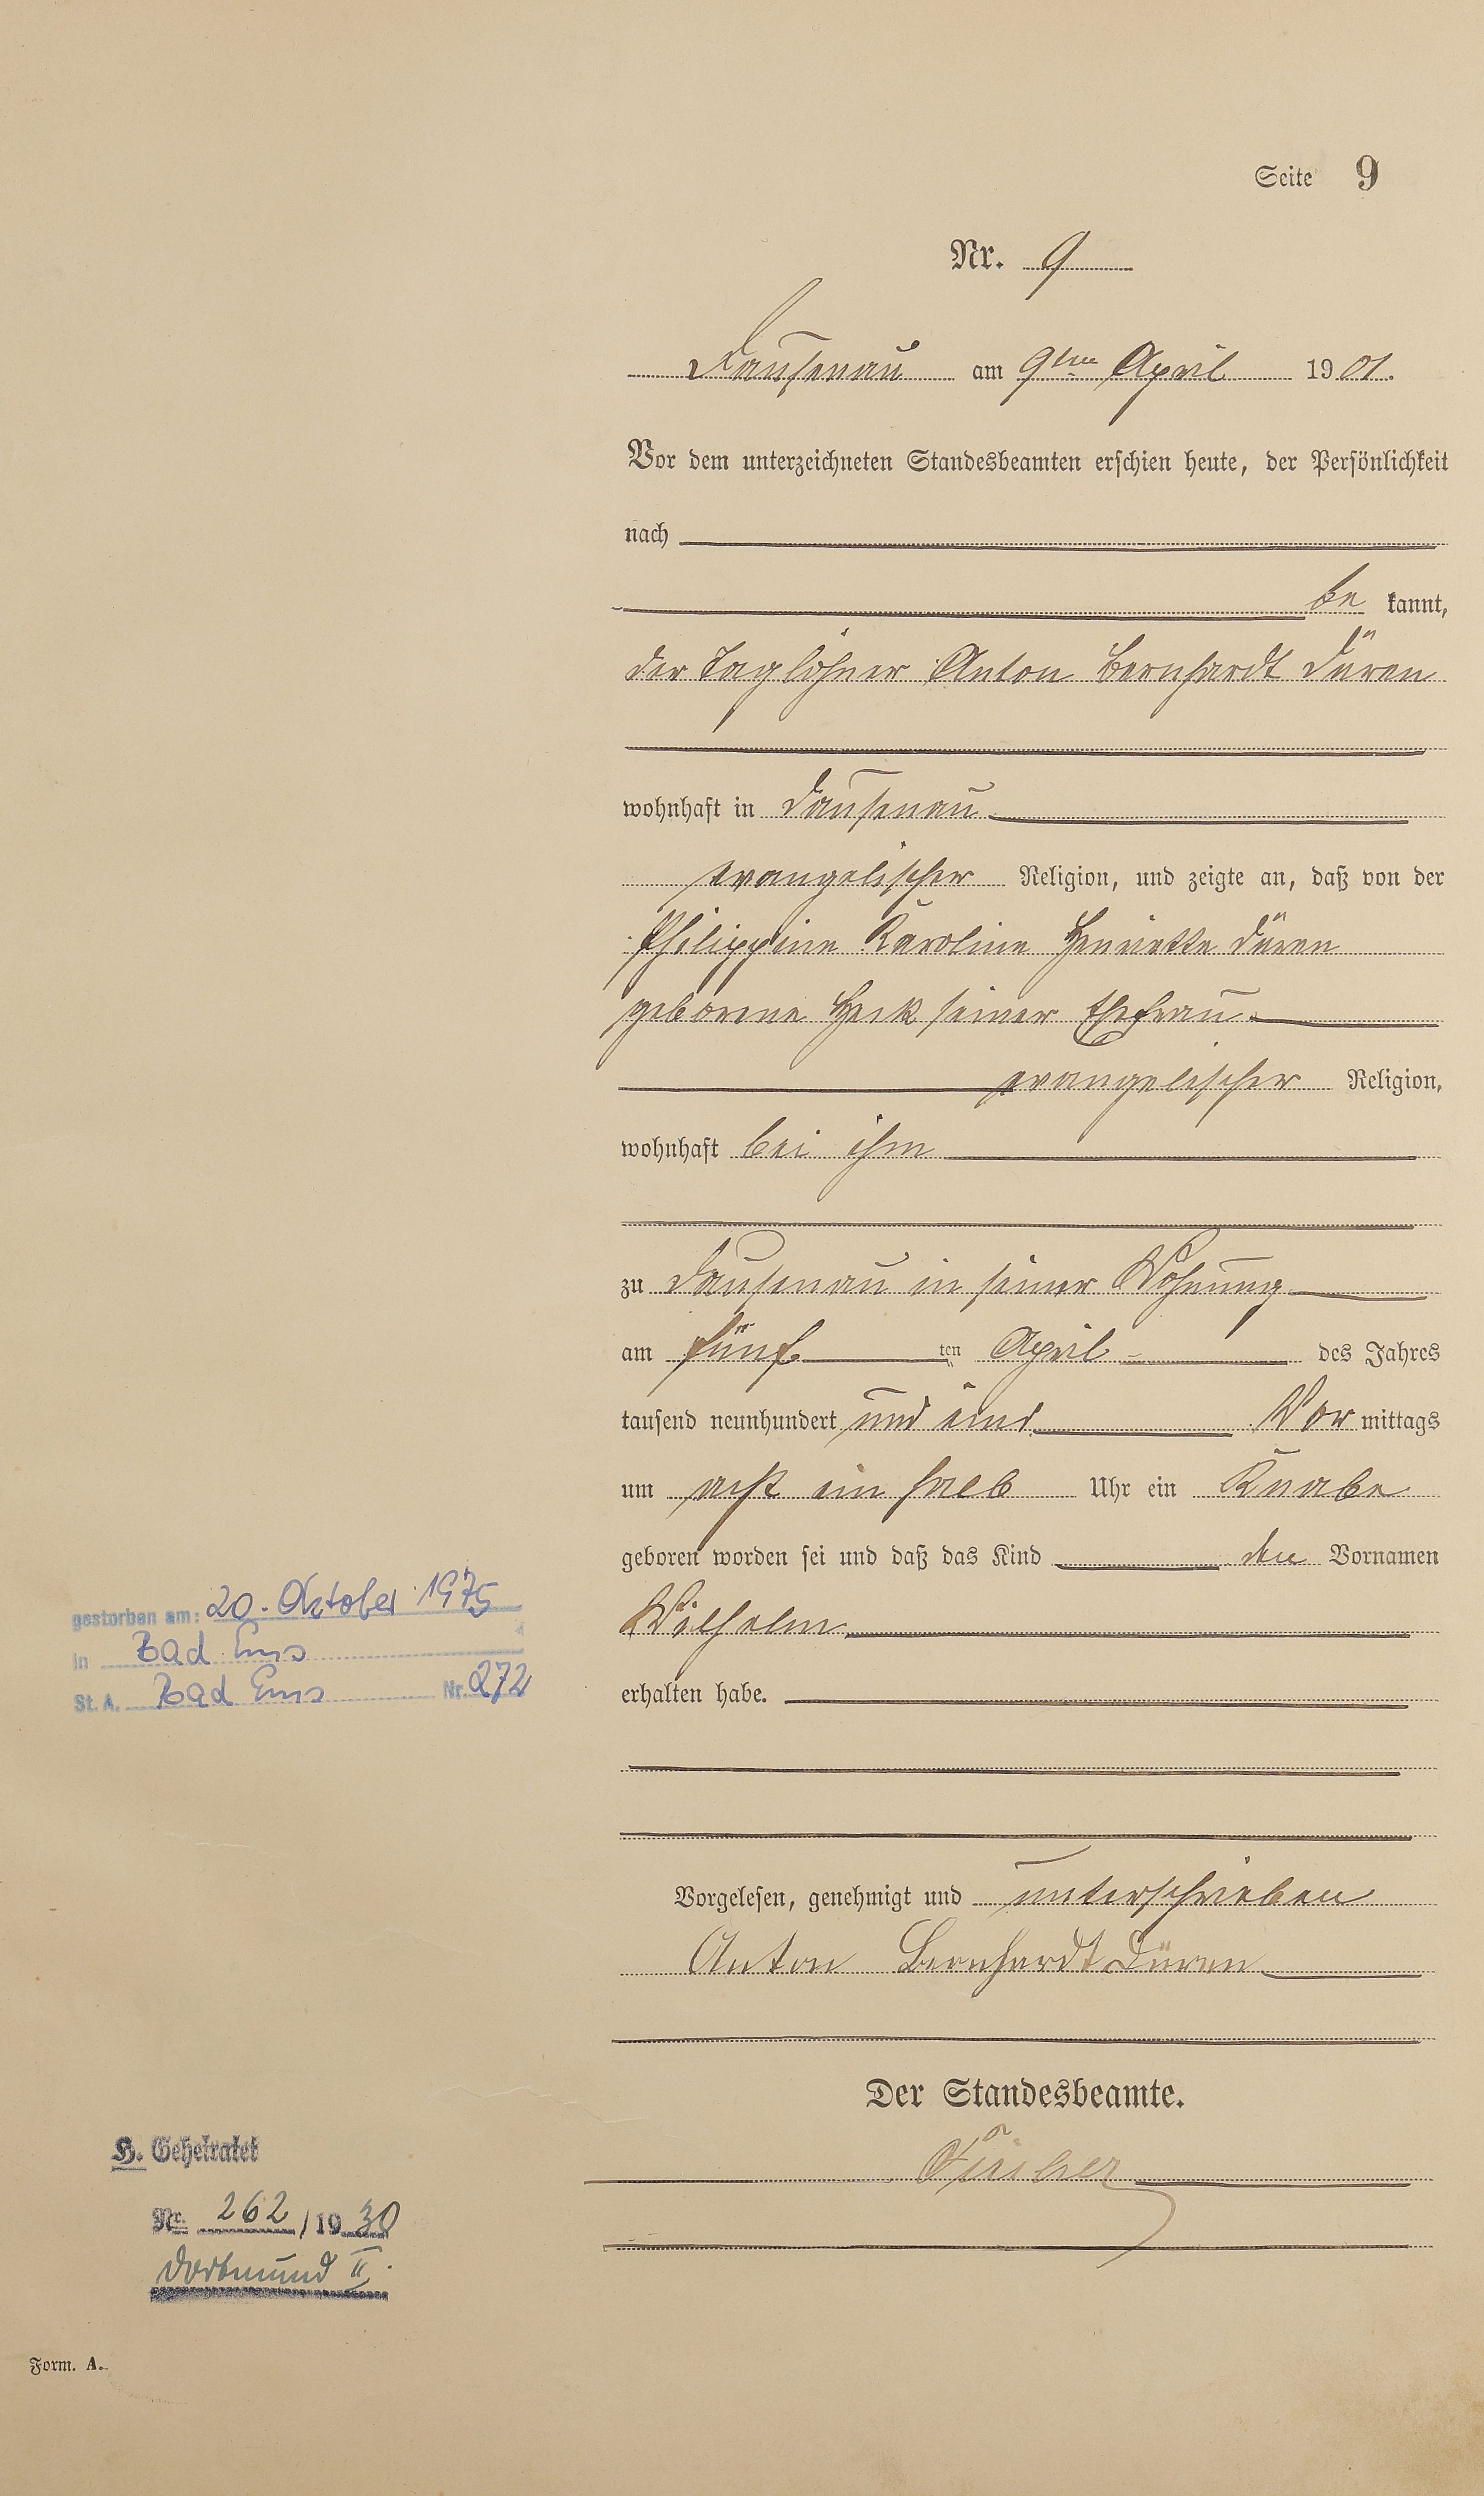 Seite 9
Nr. 9
Dausenau am 9ten April 1901.
Vor dem unterzeichneten Standesbeamten erschien heute, der Persönlichkeit
nach
be kannt,
der Taglöhner Anton Bernhardt Düren
wohnhaft in Dausenau
evangelischer Religion, und zeigte an, daß von der
Philippine Karoline Henriette Düren
geborene Heck seiner Ehefrau
evangelischer Religion,
wohnhaft bei ihm
zu Dausenau in seiner Wohnung
am fünf ten April des Jahres
tausend neunhundert und eins Vor mittags
um acht ein halb Uhr ein Knabe
geboren worden sei und daß das Kind den Vornamen
Wilhelm
erhalten habe.
Vorgelesen, genehmigt und unterschrieben
Anton Bernhardt Düren
Der Standesbeamte.
gestorben am: 20. Oktober 1975
in Bad Ems
St. A. Bad Ems Nr. 272
H. Geheiratet
Nr. 262/1930
Dortmund II.
Form. A.